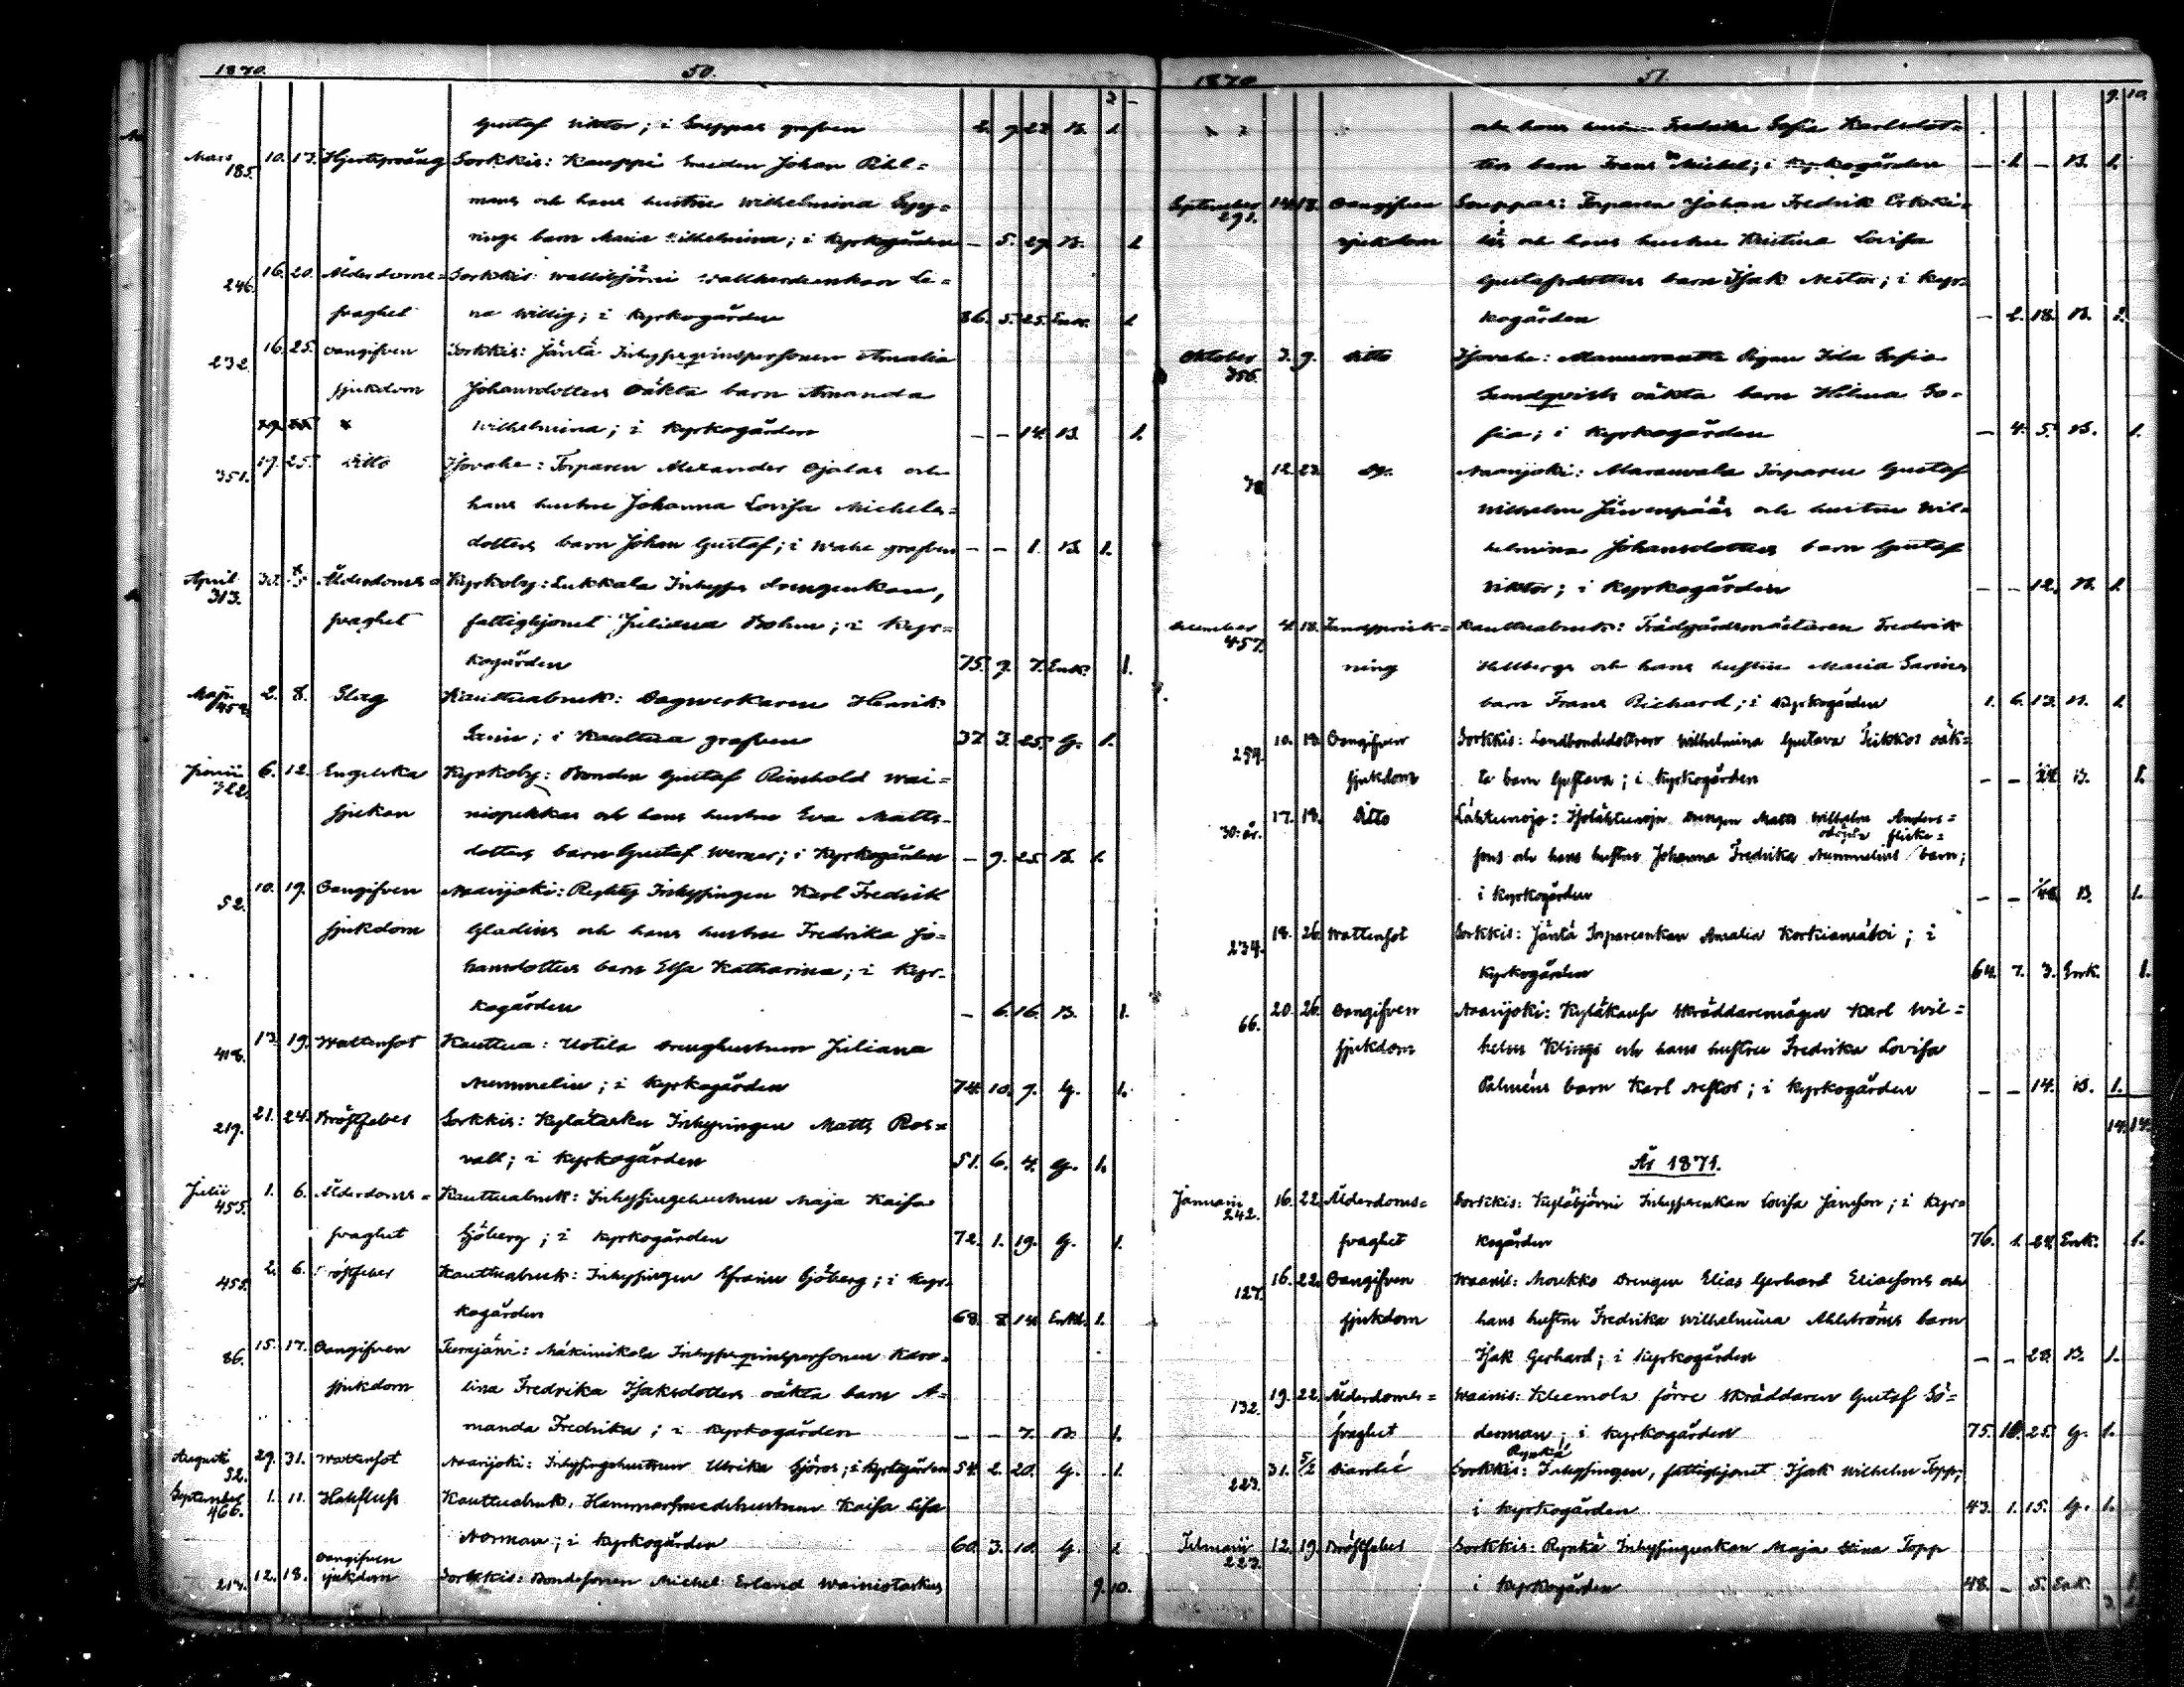 1870. 50.
2 –
Gustaf Viktor; i Souppas grafven 2. 9. 23. B. 1.
Mars 185. 10. 17. Hjertsprång Sorkkis: Kauppi Smeden Johan Rihl=
mans och hans hustru Wilhelmina
barn Maria Wilhelmina; i Kyrkogården – 5. 29. B. 1
246. 16. 20. Ålderdoms= Sorkkis: Wallibjörni Le=
svaghet na Willig; i Kyrkogården 86. 5. 25. Enk. 1
232. 16. 25. Oangifven Sorkkis: Jäntä Inhyses qvinspersonen Amalia
sjukdom Johansdotters oäkta barn Amanda
Wilhelmina; i Kyrkogården – – 14. B. 1.
351. 19. 25. Ditto Isovahe: Torparen Alexander Ojalas och
hans hustru Johanna Lovisa Michels=
dotters barn Johan Gustaf; i Wahe grafven – – 1. B. 1.
April 313. Ålderdoms= Kyrkoby: Lukkala Inhyses drengenkan,
svaghet fattighjonet Juliana Bohm; i Kyr=
kogården 75. 9. 7. Enk. 1.
Maji 452. 2. 8. Slag Kauttuabruk: Dagverkaren Henrik
Grén; i Kauttua grafven 37. 3. 25. G. 1.
Junii 322. 6. 12. Engelska Kyrkoby: Bonden Gustaf Reinhold Wai=
sjukan niopekkas och hans hustru Eva Matts=
dotters barn Gustaf Werner; i Kyrkogården – 9. 25. B. 1.
52. 10. 19. Oangifven Naarijoki: Inhysingen Karl Fredrik
sjukdom Gladins och hans hustru Fredrika Jo=
hansdotters barn Elsa Katharina; i Kyr=
kogården – 6. 16. B. 1.
418. 13. 19. Wattensot Kauttua: Uotila Drenghustrun Juliana
Nummelin; i Kyrkogården 74. 10. 9. G. 1.
219. 21. 24. Bröstfeber Sorkkis: Kylätarku Inhysingen Matts Ros=
vall; i Kyrkogården 51. 6. 4. G. 1.
Julii 455. 1. 6. Ålderdoms= Kauttuabruk: Inhysingehustrun Maja Kaisa
svaghet Sjöberg; i Kyrkogården 72. 1. 19. G. 1.
455. 2. 6. Bröstfeber Kauttuabruk: Inhysingen Efraim Sjöberg; i Kyr=
kogården 68. 8. 14. Enkl. 1.
86. 15. 17. Oangifven Turajärvi: Mäkimikola Inhyses qvinspersonen Karo=
sjukdom lina Fredrika Isaksdotters oäkta barn A=
manda Fredrika; i Kyrkogården – – 7. B. 1.
Augusti 32. 29. 31. Wattensot Naarijoki: Inhysingehustrun Ulrika Sjöros; i Kyrkogården 54. 2. 20. G. 1.
September 466. 1. 11. Halsfluss Kauttuabruk: Hammarsmedshustrun Kaisa Lisa
Norman; i Kyrkogården 60. 3. 10. G. 1
12. 18. Oangifven sjukdom Sorkkis: Bondesonen Michel Erland Wainiotarkus
9. 10.
1870 51.
9. 10.
och hans hustru Fredrika Sofia Karlsdot=
ters barn Frans Michel; i Kyrkogården – 1. – B. 1.
September 291. 14. 18. Oangifven Souppas: Torparen Johan Fredrik Erkki=
sjukdom läs och hans hustru Kristina Lovisa
Gustafsdotters barn Isak Nestor; i Kyr=
kogården – 2. 18. B. 1.
Oktober 356. 3. 9. Ditto Isovahe: Pigan Ida Sofia
Sundqvists oäkta barn Hilma So=
fia; i Kyrkogården – 4. 5. B. 1.
12. 23. Naarijoki: Marauvala Torparen Gustaf
Wilhelm Järvenpääs och hustru Wil=
helmina Johansdotters barn Gustaf
Viktor; i Kyrkogården – – 12. B. 1.
December 457. 4. 18. Kauttuabruk: Trädgårdsmästaren Fredrik
ning Hellbergs och hans hustru Maria Savins
barn Frans Richard; i Kyrkogården 1. 6. 13. B. 1
254. 10. 18. Oangifven Sorkkis: Landbondedottren Wilhelmina Gustava oäk=
sjukdom ta barn Gustava; i Kyrkogården – – B. 1.
17. 18. Ditto Läktunoja: Isoläktunoja Drengen Matts Wilhelm Anders=
sons och hans hustrus Johanna Fredrika Nummelins odöpta flicke= barn;
i Kyrkogården – – B. 1.
234. 18. 26. Wattensot Sorkkis: Jäntä Torpareenkan Amalia Korkiamäki; i
Kyrkogården 64. 7. 3. Enk. 1.
66. 20. 26. Oangifven Naarijoki: Kyläkaufa Skräddaremågen Karl Wil=
sjukdom helm Klings och hans hustru Fredrika Lovisa
Palméns barn Karl Nestor; i Kyrkogården – – 14. B. 1.
14. 14.
År 1871.
Januarii 242. 16. 22. Ålderdoms= Sorkkis: Kyläbjörni Inhysesenkan Lovisa Jansson; i Kyr=
svaghet kogården 76. 1. 24. Enk. 1.
127. 16. 22. Oangifven Waanis: Moukko Drengen Elias Gerhard Eliassons och
sjukdom hans hustru Fredrika Wilhelmina Ahlströms barn
Isak Gerhard; i Kyrkogården – – 28. B. 1.
132. 19. 22. Ålderdoms= Waanis: Kleemola förre Skräddaren Gustaf Sö=
svaghet derman; i Kyrkogården 75. 10. 25. G. 1.
223. 31. 5/2 Diarrhé Sorkkis: Rynkä Inhysingen, fattighjonet Isak Wilhelm Topp;
i Kyrkogården 43. 1. 15. G. 1.
Februarii 223. 12. 19. Bröstfeber Sorkkis: Rynkä Inhysingenkan Maja Stina Topp
i Kyrkogården 48. – 5. Enk. 1.
3. 2.